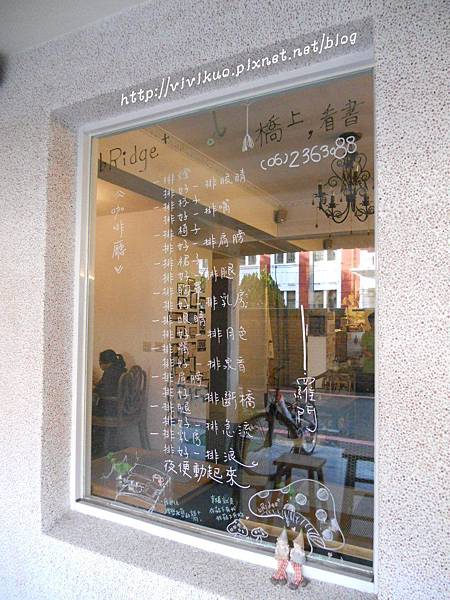 http://vivikuo.pixnet.net/blog
bRidge+
橋上，看書
(06)2363088
《咖啡廳》
一排燈
排好一排眼睛
一排杯子
排好一排嘴
一排椅子
排好一排肩膀
一排裙子
排好一排腿
一排胸罩
排好一排乳房
一排眼睛
排好一排月色
一排嘴
排好一排泉音
一排肩膀
排好一排斷橋
一排腿
排好一排急流
一排乳房
排好一排浪
夜便動起來
——羅門
bRidge+